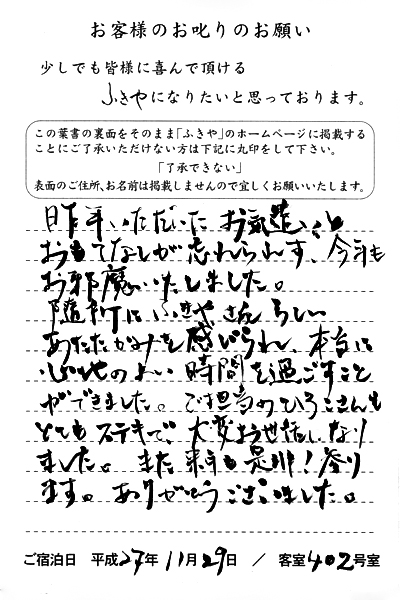 お客様のお叱りのお願い
少しでも皆様に喜んで頂ける
ふきやになりたいと思っております。
この葉書の裏面をそのまま「ふきや」のホームページに掲載する
ことにご了承いただけない方は下記に丸印をして下さい。
「了承できない」
表面のご住所、お名前は掲載しませんので宜しくお願いいたします。
昨年いただいたお気遣いと
おもてなしが忘れられず、今年も
お邪魔いたしました。
随所にふきやさんらしい
あたたかみを感じられ、本当に
心地のよい時間を過ごすこと
ができました。ご担当のひろこさんも
とてもステキで、大変お世話になり
ました。また来年も是非!参り
ます。ありがとうございました。
ご宿泊日 平成27年11月29日 / 客室402号室